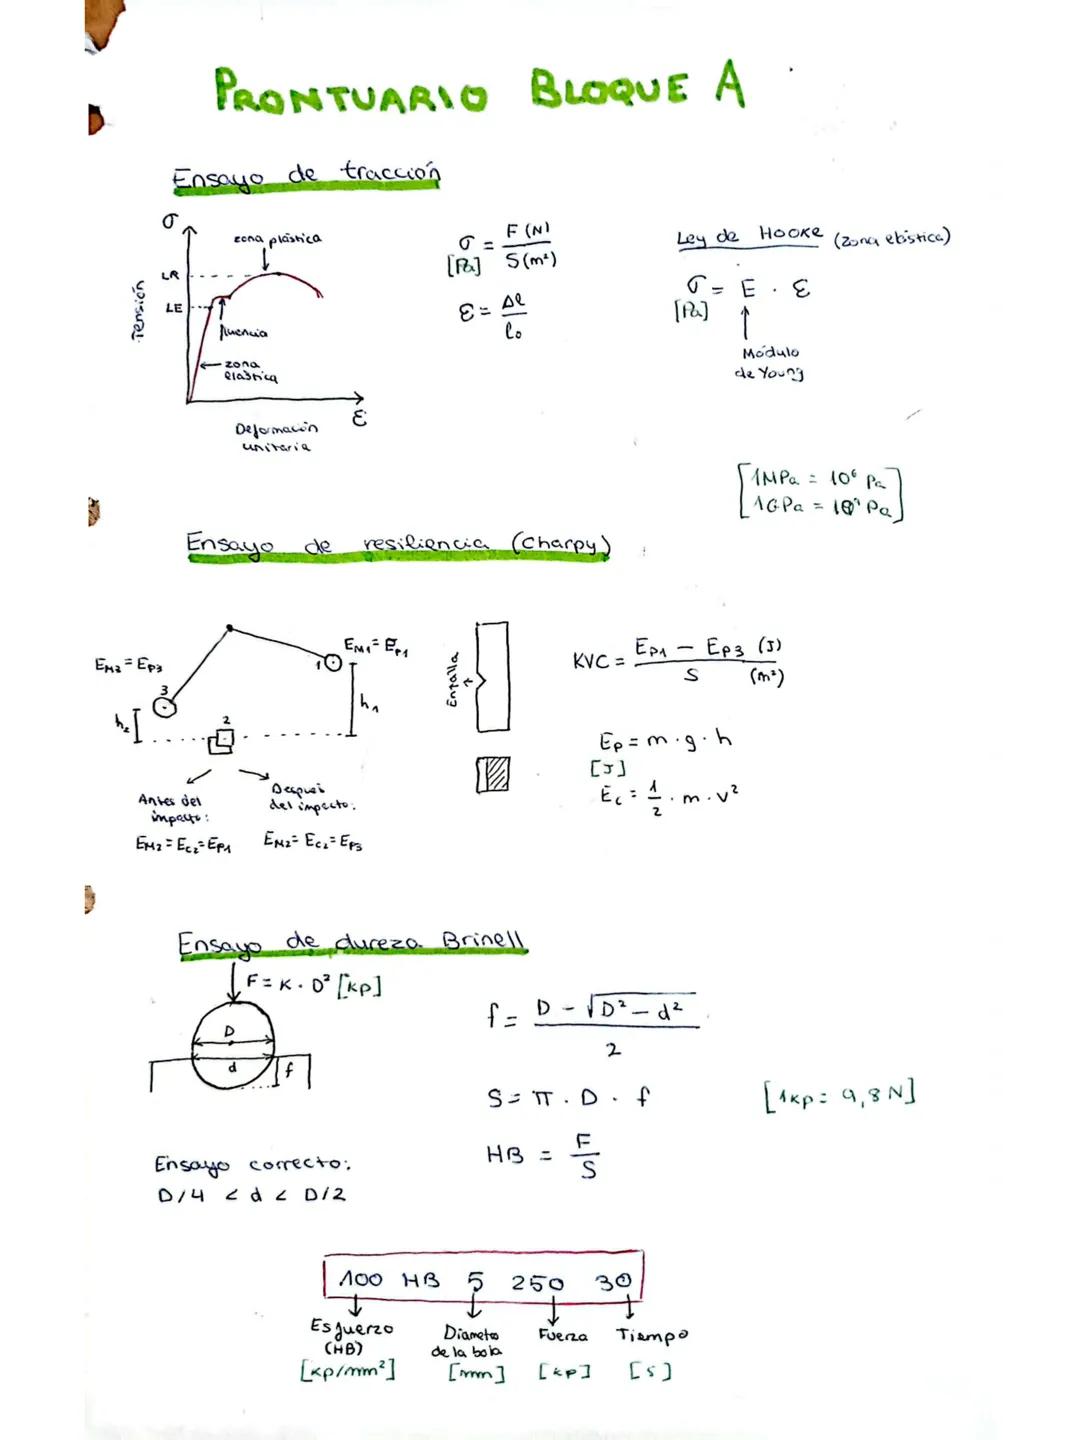 PRONTUARIO BLOQUE A
Ensayo de tracción
σ
Tensión
LR
LE
zona plástica
fluencia
zona
elástica
ε
Deformación
unitaria
σ = F (N) / S (m²)
[Pa]
ε = Δl / l₀
Ley de HOOKE (zona elástica)
σ = E · ε
[Pa]
Módulo
de Young
[1MPa = 10⁶ Pa
1GPa = 10⁹ Pa]
Ensayo de resiliencia (Charpy)
EM3 = EP3
3
h₂
2
1
EM1 = EP1
h₁
Antes del
impacto:
EM2 = EC2 = EP1
Después
del impacto:
EM2 = EC2 = EP3
Entalla
KVC = EP1 - EP3 (J) / S (m²)
Ep = m · g · h
[J]
Ec = 1/2 · m · v²
Ensayo de dureza Brinell
F = K · D² [kp]
D
d
f
f = D - √D² - d² / 2
S = π · D · f
[1kp = 9,8N]
HB = F / S
Ensayo correcto:
D/4 < d < D/2
100 HB 5 250 30
Esfuerzo
(HB)
[kp/mm²]
Diámetro
de la bola
[mm]
Fuerza
[kp]
Tiempo
[s]